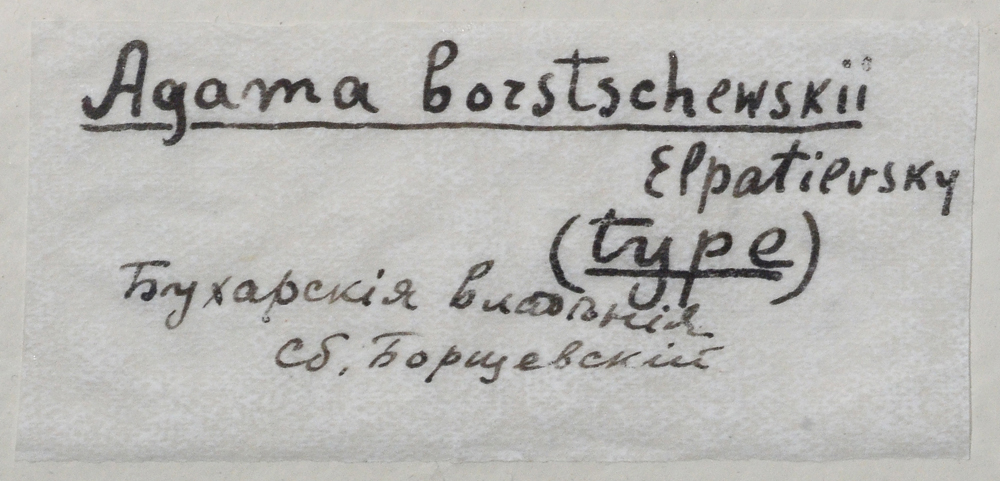 Agama borstschewskii
Elpatievsky
(type)
Бухарскія владѣнія
Сб. Борщевскій